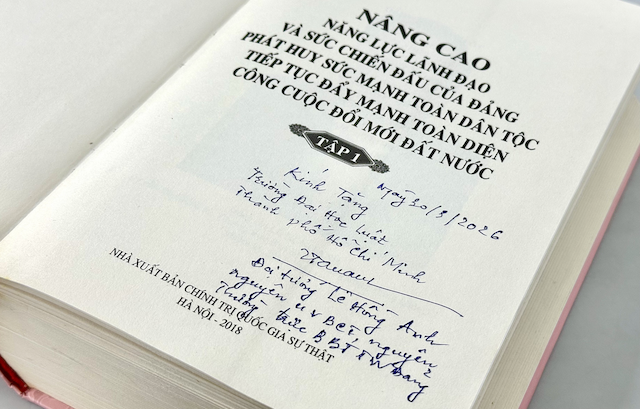 NÂNG CAO
NĂNG LỰC LÃNH ĐẠO
VÀ SỨC CHIẾN ĐẤU CỦA ĐẢNG
PHÁT HUY SỨC MẠNH TOÀN DÂN TỘC
TIẾP TỤC ĐẨY MẠNH TOÀN DIỆN
CÔNG CUỘC ĐỔI MỚI ĐẤT NƯỚC
TẬP 1
Ngày 30/3/2026
Kính Tặng
Trường Đại Học Luật
Thành phố Hồ Chí Minh
Đại tướng Lê Hồng Anh
nguyên UV BCT, nguyên
Thường trực BBT TW Đảng
NHÀ XUẤT BẢN CHÍNH TRỊ QUỐC GIA SỰ THẬT
HÀ NỘI - 2018